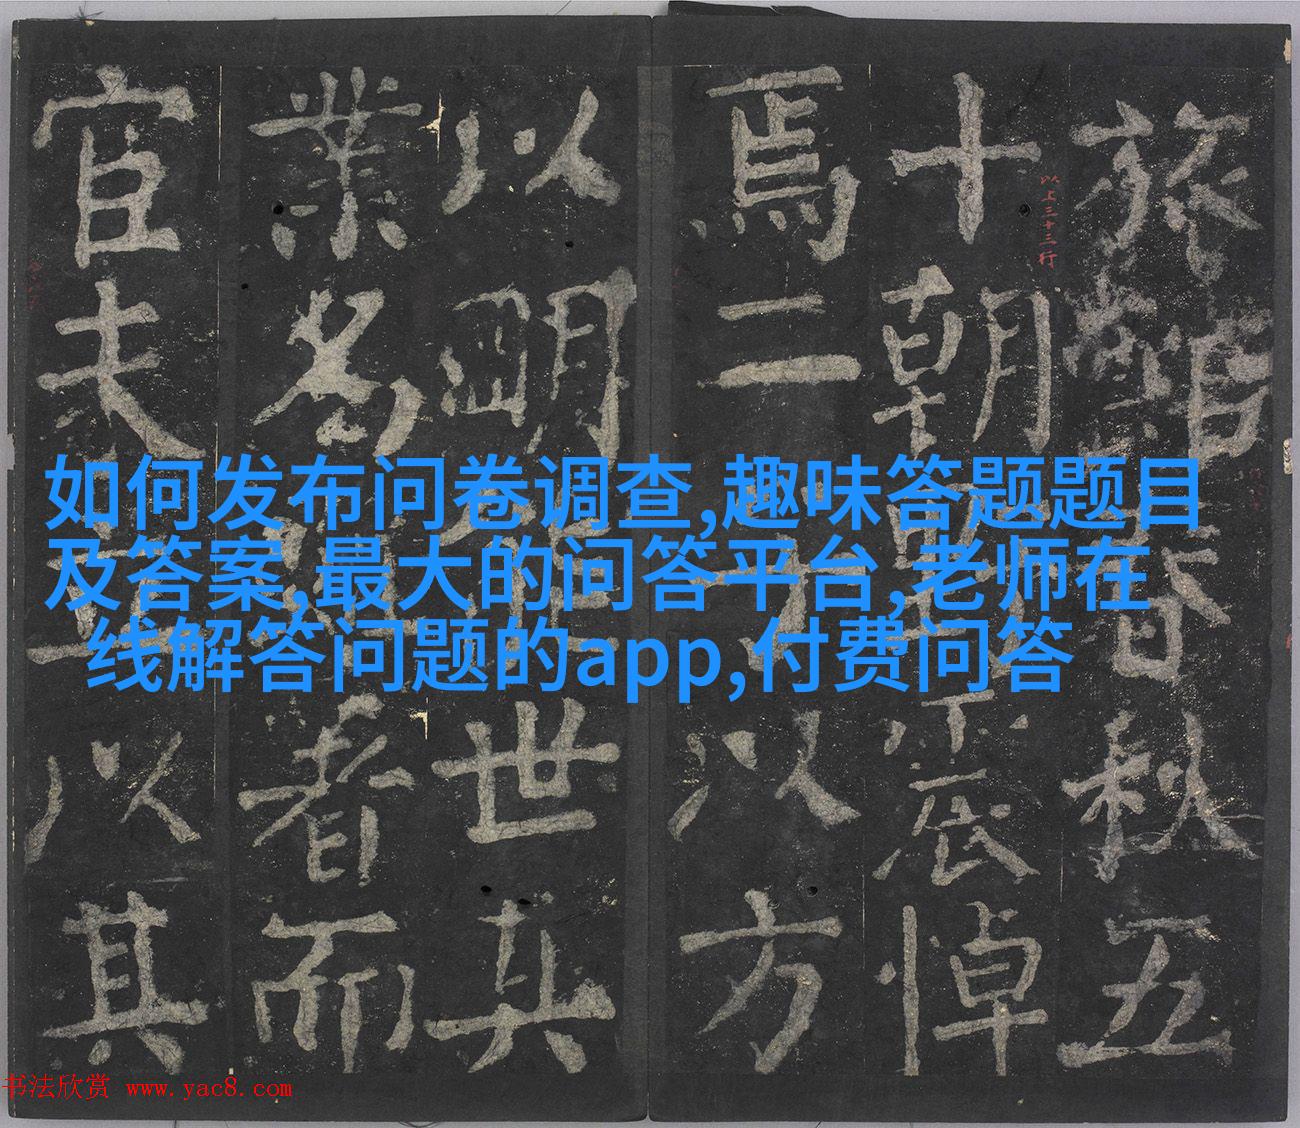 旅館春秋五
十朝震悼
以上三十三行
焉二以方
以明世其
業名者而
官夫以其
如何发布问卷调查,趣味答题题目
及答案,最大的问答平台,老师在
线解答问题的app,付费问答
书法欣赏 www.yac8.com